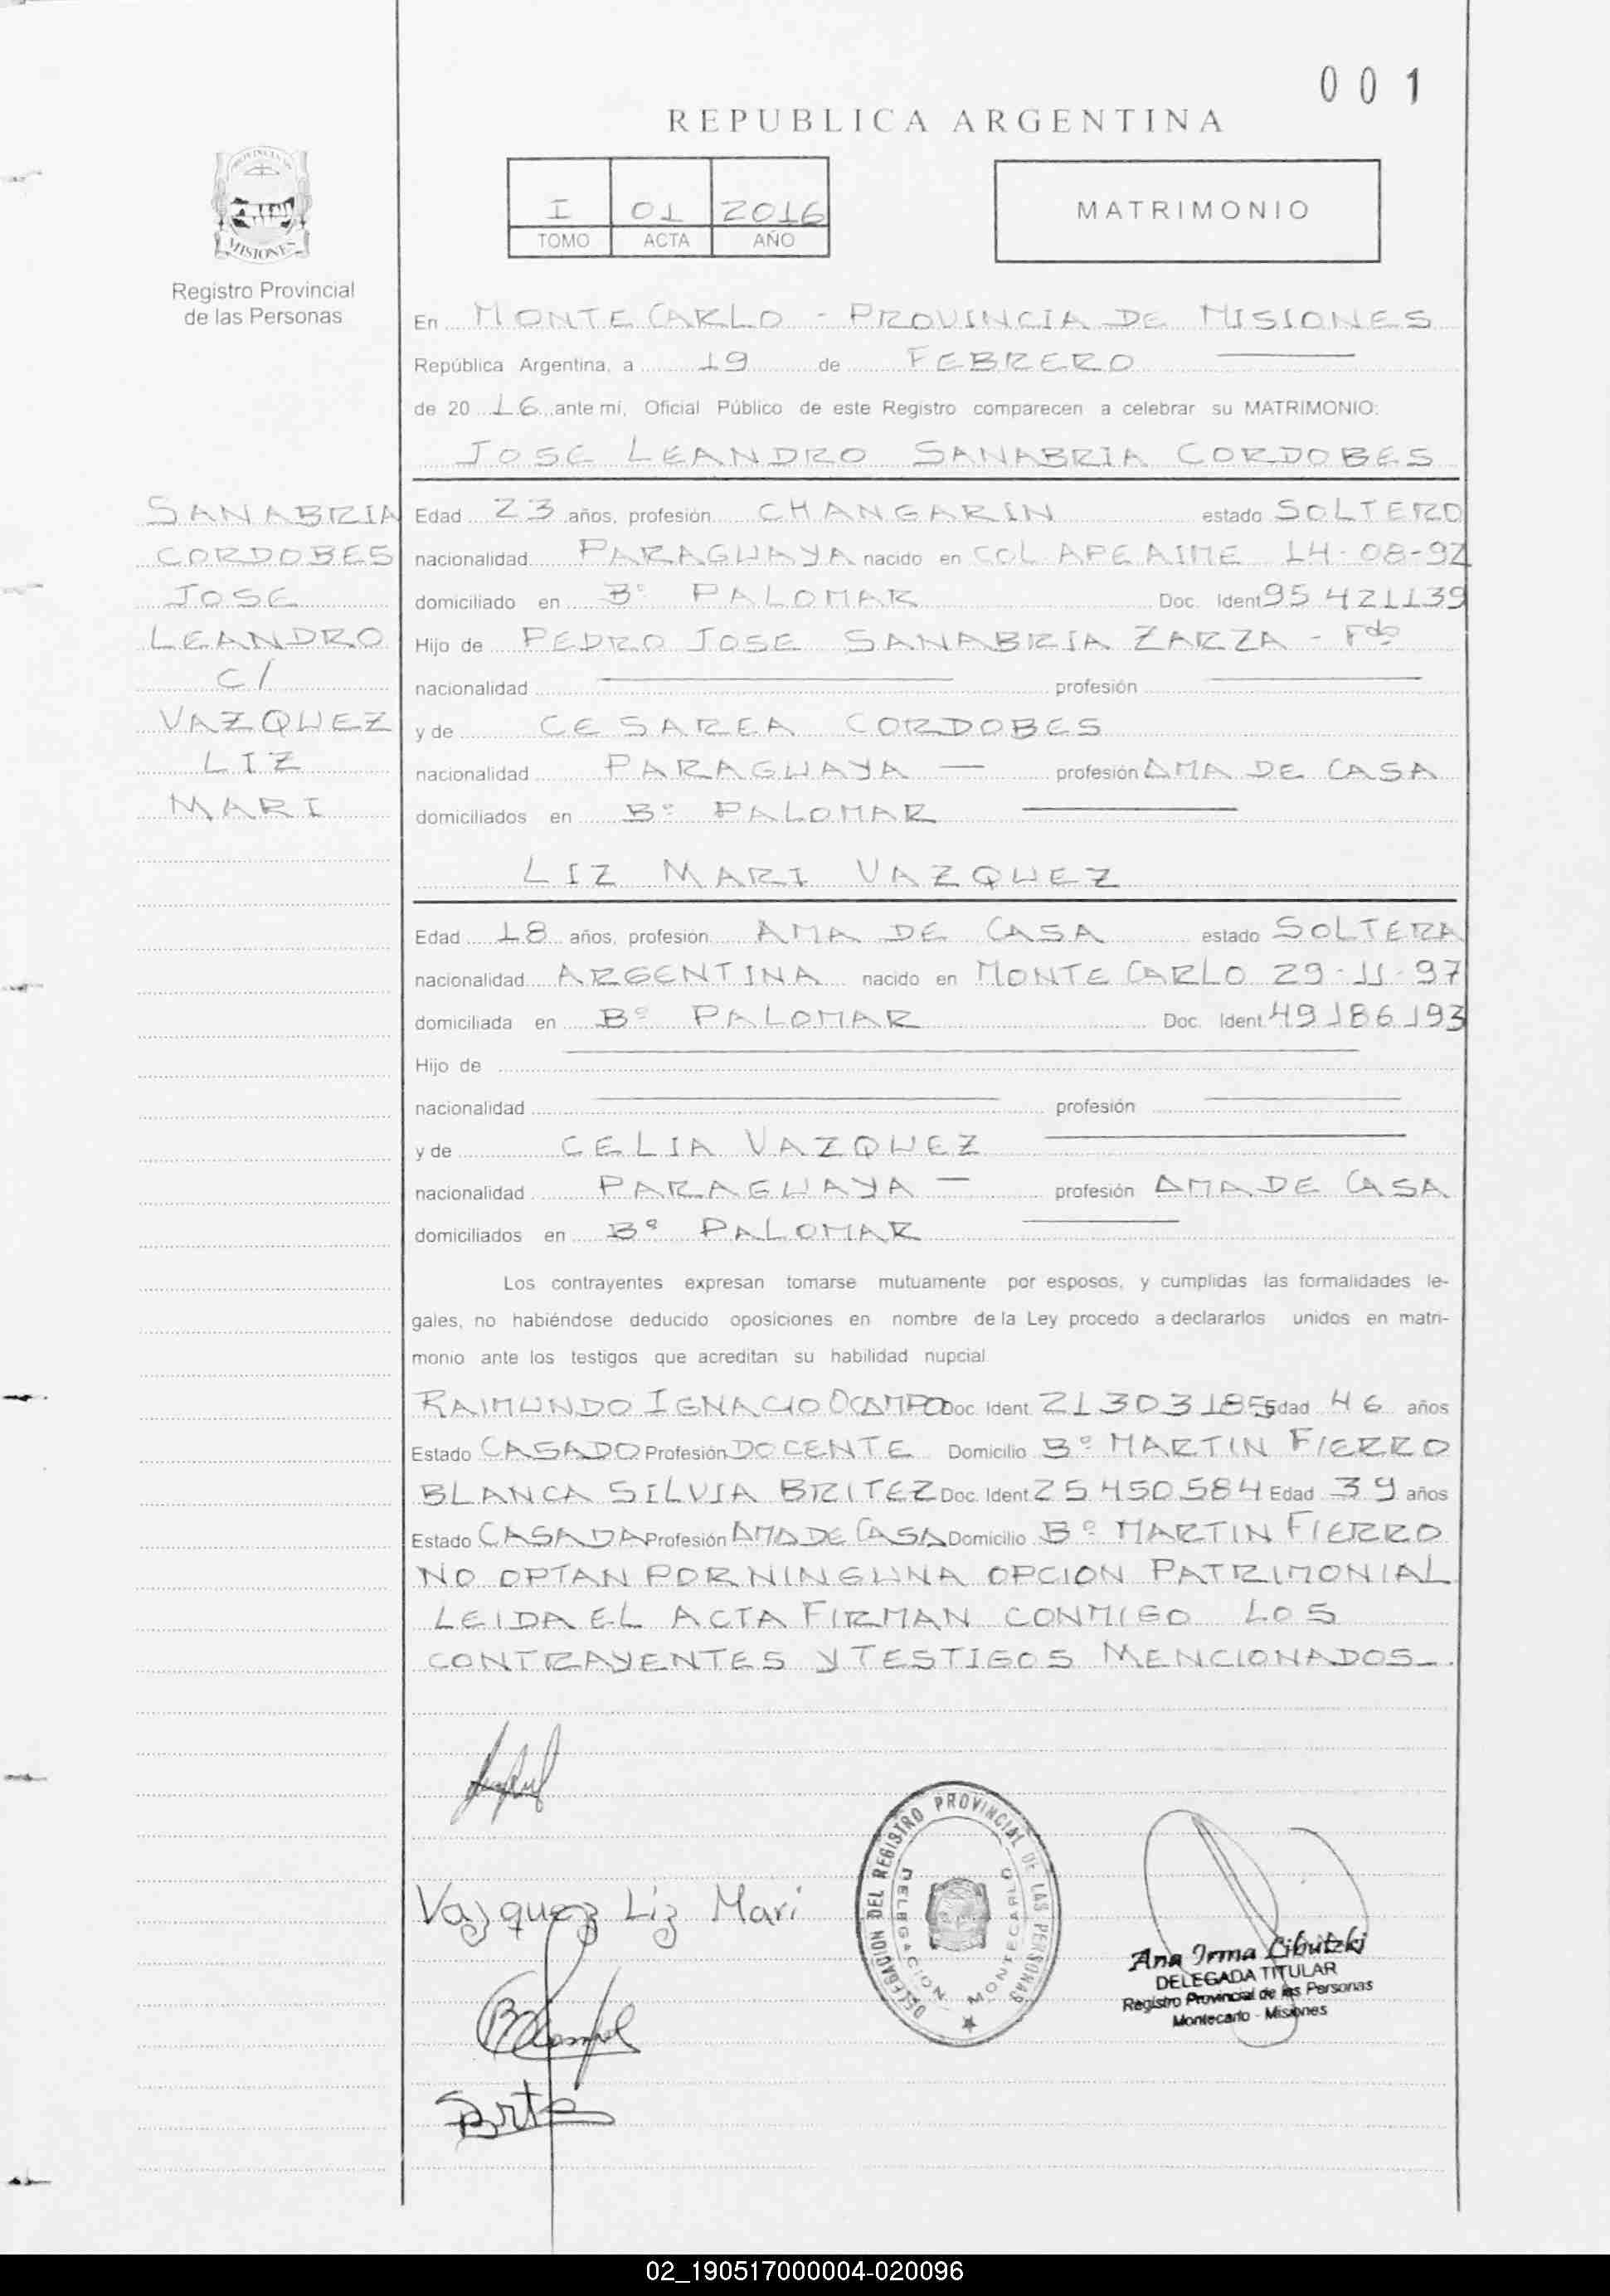 001
REPUBLICA ARGENTINA
PROVINCIA DE
MISIONES
Registro Provincial
de las Personas
I 01 2016
TOMO ACTA AÑO
MATRIMONIO
En MONTE CARLO - PROVINCIA DE MISIONES
República Argentina, a 19 de FEBRERO
de 20 16 ante mí, Oficial Público de este Registro comparecen a celebrar su MATRIMONIO:
JOSE LEANDRO SANABRIA CORDOBES
SANABRIA
CORDOBES
JOSE
LEANDRO
C/
VAZQUEZ
LIZ
MARI
Edad 23 años, profesión CHANGARIN estado SOLTERO
nacionalidad PARAGUAYA nacido en COL APE AIME 14-08-92
domiciliado en Bº PALOMAR Doc. Ident 95 421139
Hijo de PEDRO JOSE SANABRIA ZARZA - Fdo
nacionalidad profesión
y de CESAREA CORDOBES
nacionalidad PARAGUAYA — profesión AMA DE CASA
domiciliados en Bº PALOMAR
LIZ MARI VAZQUEZ
Edad 18 años, profesión AMA DE CASA estado SOLTERA
nacionalidad ARGENTINA nacido en MONTE CARLO 29-11-97
domiciliada en Bº PALOMAR Doc. Ident. 49186193
Hijo de
nacionalidad profesión
y de CELIA VAZQUEZ
nacionalidad PARAGUAYA — profesión AMA DE CASA
domiciliados en Bº PALOMAR
Los contrayentes expresan tomarse mutuamente por esposos, y cumplidas las formalidades le-
gales, no habiéndose deducido oposiciones en nombre de la Ley procedo a declararlos unidos en matri-
monio ante los testigos que acreditan su habilidad nupcial
RAIMUNDO IGNACIO OCAMPO Doc. Ident. 21303185 Edad 46 años
Estado CASADO Profesión DOCENTE Domicilio Bº MARTIN FIERRO
BLANCA SILVIA BRITEZ Doc. Ident 25450584 Edad 39 años
Estado CASADA Profesión AMA DE CASA Domicilio Bº MARTIN FIERRO
NO OPTAN POR NINGUNA OPCION PATRIMONIAL
LEIDA EL ACTA FIRMAN CONMIGO LOS
CONTRAYENTES Y TESTIGOS MENCIONADOS-.
Vazquez Liz Mari
DELEGACION DEL REGISTRO PROVINCIAL DE LAS PERSONAS
DELEGACION MONTECARLO
Ana Irma Cibutzki
DELEGADA TITULAR
Registro Provincial de las Personas
Montecarlo - Misiones
02_190517000004-020096